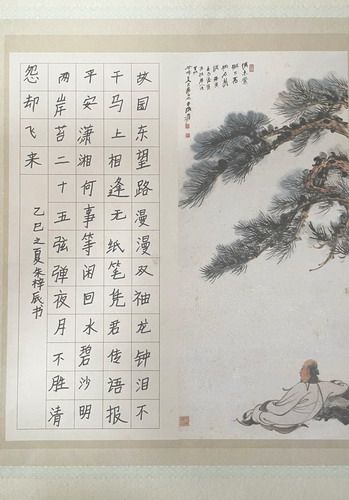 故园东望路漫漫双袖龙钟泪不
干马上相逢无纸笔凭君传语报
平安潇湘何事等闲回水碧沙明
两岸苔二十五弦弹夜月不胜清
怨却飞来
乙巳之夏朱梓辰书